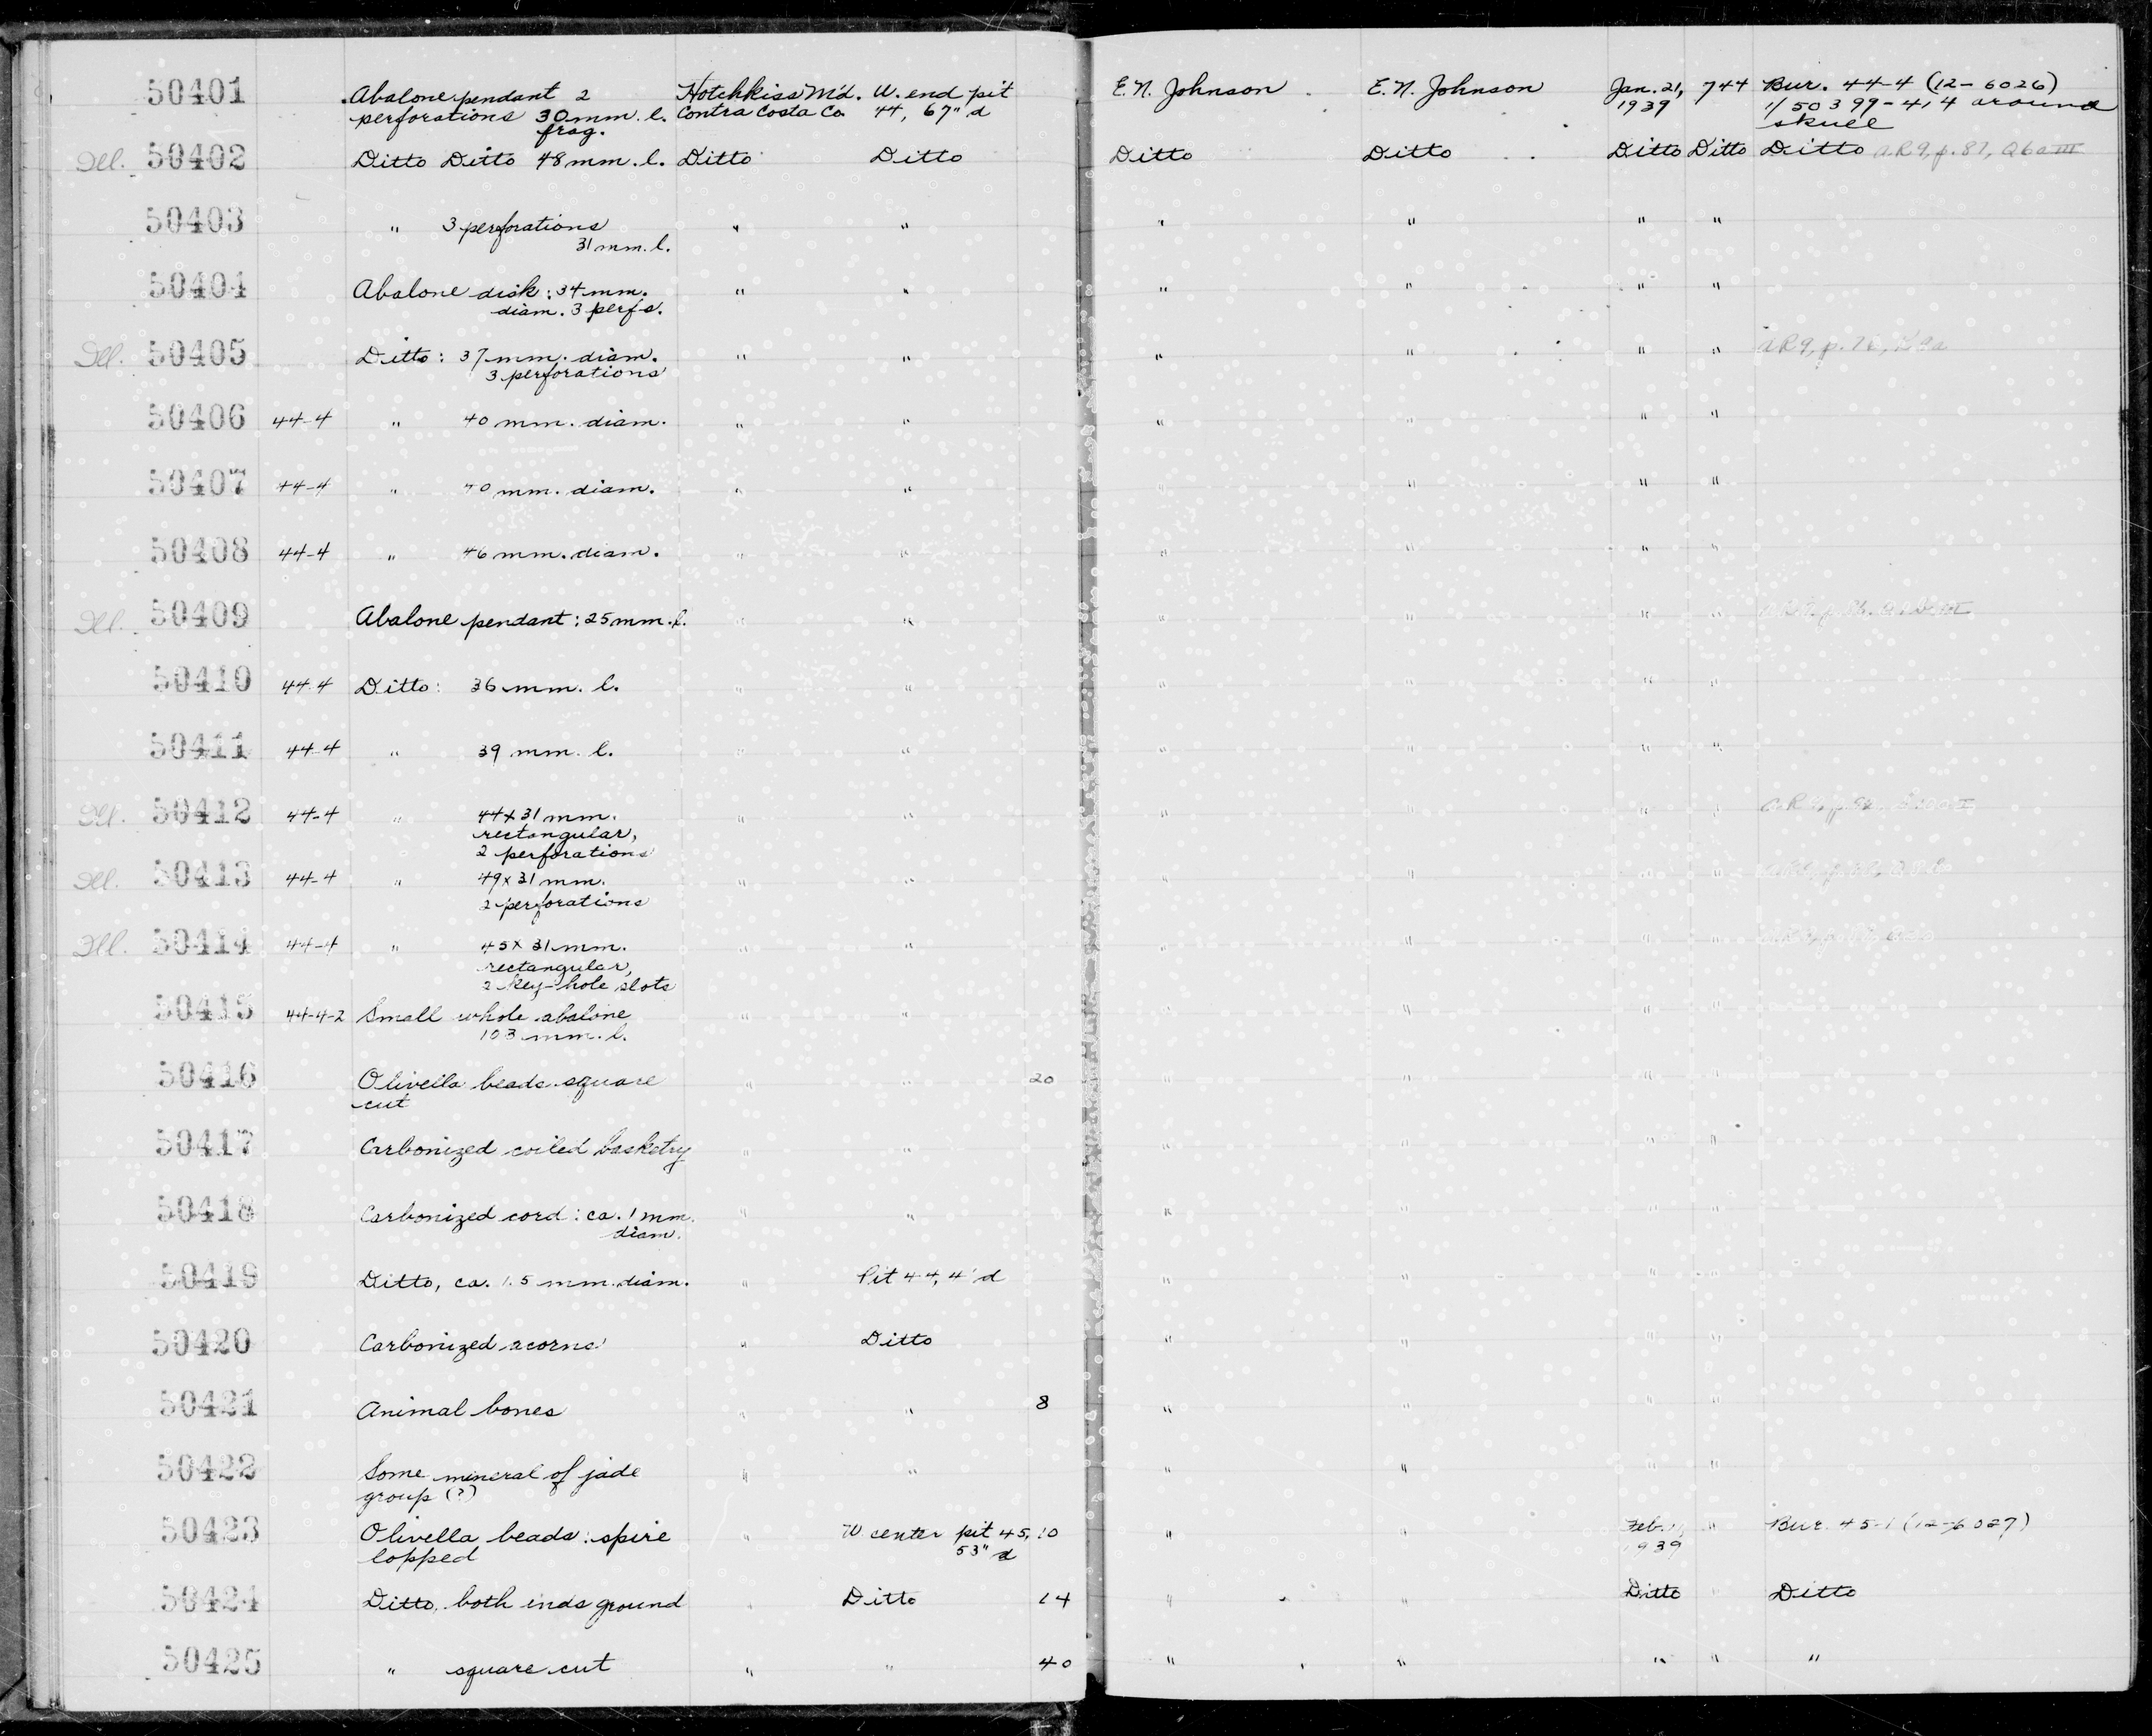 50401 Abalone pendant 2 Hotchkiss M'd. W. end pit E. N. Johnson E. N. Johnson Jan. 21, 744 Bur. 44-4 (12-6026)
perforations 30 mm. l. Contra Costa Co. 44, 67" d 1939 1/50399-414 around
frag. skull
Ill. 50402 Ditto Ditto 48 mm. l. Ditto Ditto Ditto Ditto Ditto Ditto Ditto AR9, p. 87, Q6aIII
50403 " 3 perforations " " " " " "
31 mm. l.
50404 Abalone disk: 34 mm. " " " " " "
diam. 3 perfs.
Ill. 50405 Ditto: 37 mm. diam. " " " " " " AR9, p. 76,
3 perforations
50406 44-4 " 40 mm. diam. " " " " " "
50407 44-4 " 40 mm. diam. " " " " " "
50408 44-4 " 46 mm. diam. " " " " " "
Ill. 50409 Abalone pendant: 25 mm. l. " " " " " "
50410 44-4 Ditto: 36 mm. l. " " " " " "
50411 44-4 " 39 mm. l. " " " " " "
Ill. 50412 44-4 " 44x31 mm. " " " " " "
rectangular,
2 perforations
Ill. 50413 44-4 " 49x31 mm. " " " " " "
2 perforations
Ill. 50414 44-4 " 45x31 mm. " " " " " "
rectangular,
2 key-hole slots
50415 44-4-2 Small whole abalone " " " " " "
103 mm. l.
50416 Olivella beads square " " 20 " " " "
cut
50417 Carbonized coiled basketry " " " " " "
50418 Carbonized cord: ca. 1 mm. " " " " " "
diam.
50419 Ditto, ca. 1.5 mm. diam. " Pit 44, 4' d " " " "
50420 Carbonized acorns " Ditto " " " "
50421 Animal bones " " 8 " " " "
50422 Some mineral of jade " " " " " "
group (?)
50423 Olivella beads: spire " W center pit 45, 10 " " Feb. " Bur. 45-1 (12-6027)
lopped 53" d 1939
50424 Ditto, both ends ground " Ditto 14 " " Ditto " Ditto
50425 " square cut " " 40 " " " " "